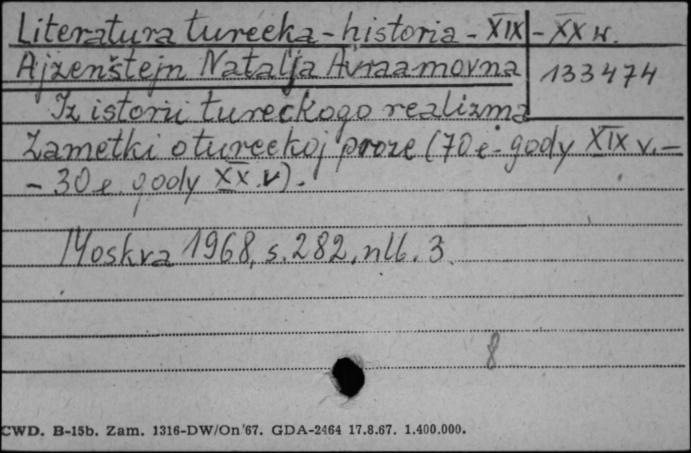 Literatura turecka - historia - XIX - XX w.
Ajzenštejn Natalja Avraamovna 133474
Iz istorii tureckogo realizma
Zametki o tureckoj proze (70 e gody XIX v. -
- 30 e gody XX v).
Moskva 1968, s. 282, nlb. 3.
8
CWD. B-15b. Zam. 1316-DW/On'67. GDA-2464 17.8.67. 1.400.000.